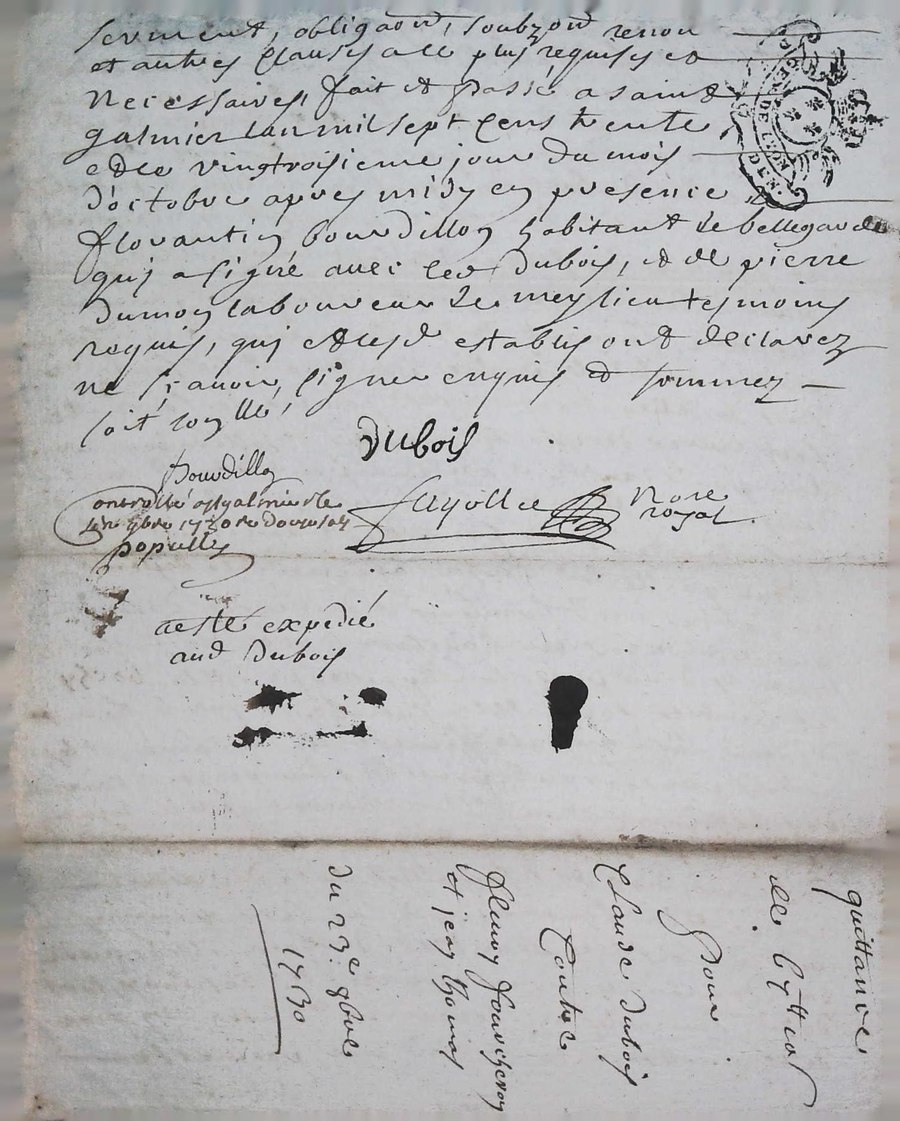 serment, obligaon, soubzon renon
et autres clauses a ce plus requises et
necessaires, fait et passé a saint
galmier lan mil sept cens trente,
et le vingtroisieme jour du mois
d'octobre apres midy en presence de
florantin bourdillon habitant de bellegarde
qui a signé avec led dubois, et de pierre
dumon laboureur de meylieu tesmoins
requis, qui et lesd establis ont declarez
ne scavoir signer enquis et sommez
soit
Dubois
bourdillon
not re
royal
controllé a st galmier le
1730
aesté expedié
aud dubois
GEN DE LYON
quittance
de
pour
Claude dubois
Contre
fleury
et jean thomas
du 23.e 8bre
1730